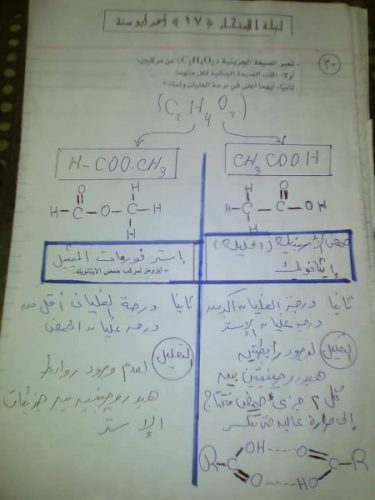 ليلة الامتحان (١٧) أحمد أبو سنة
(٣٠)
- تعبر الصيغة الجزيئية (C₂H₄O₂) عن مركبين.
أولاً: اكتب الصيغة البنائية لكل منهما.
ثانياً: أيهما أعلى في درجة الغليان ولماذا؟
(C₂H₄O₂)
H-COO.CH₃
CH₃COOH
O H
H-C-O-C-H
H
H O
H-C-C-OH
H
إستر فورمات الميثيل
- أيزومر لمركب حمض الإيثانويك
حمض الأسيتيك (الخليك)
إيثانويك
ثانياً درجة الغليان أكبر من
درجة غليان الإستر
التعليل لوجود رابطتين
هيدروجينيتين بين
كل ٢ جزئ أحمض فتحتاج
إلى حرارة عالية حتى تنكسر
ثانياً درجة الغليان أقل من
درجة غليان الحمض
التعليل لعدم وجود روابط
هيدروجينية بين جزيئات
الإستر
R-C OH O C-R
O HO